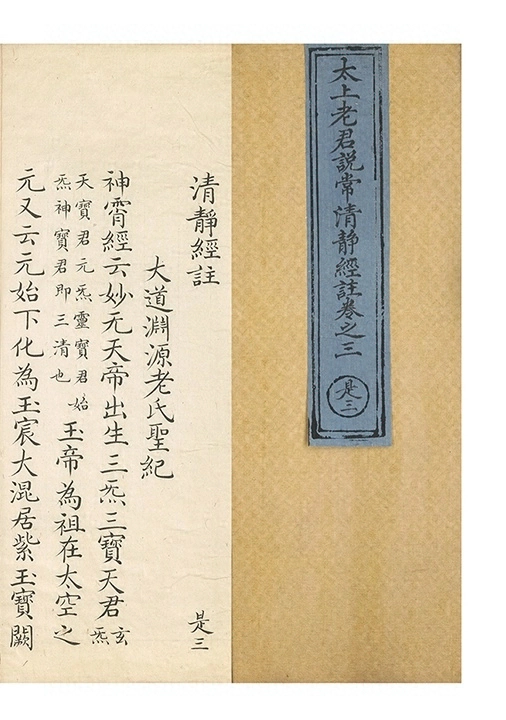 太上老君説常清靜經註卷之三 是三
清靜經註 是三
大道淵源老氏聖紀
神霄經云妙无天帝出生三炁三寶天君玄炁
天寶君元炁靈寶君始炁神寶君即三清也玉帝為祖在太空之
元又云元始下化為玉宸大混居紫玉寶闕